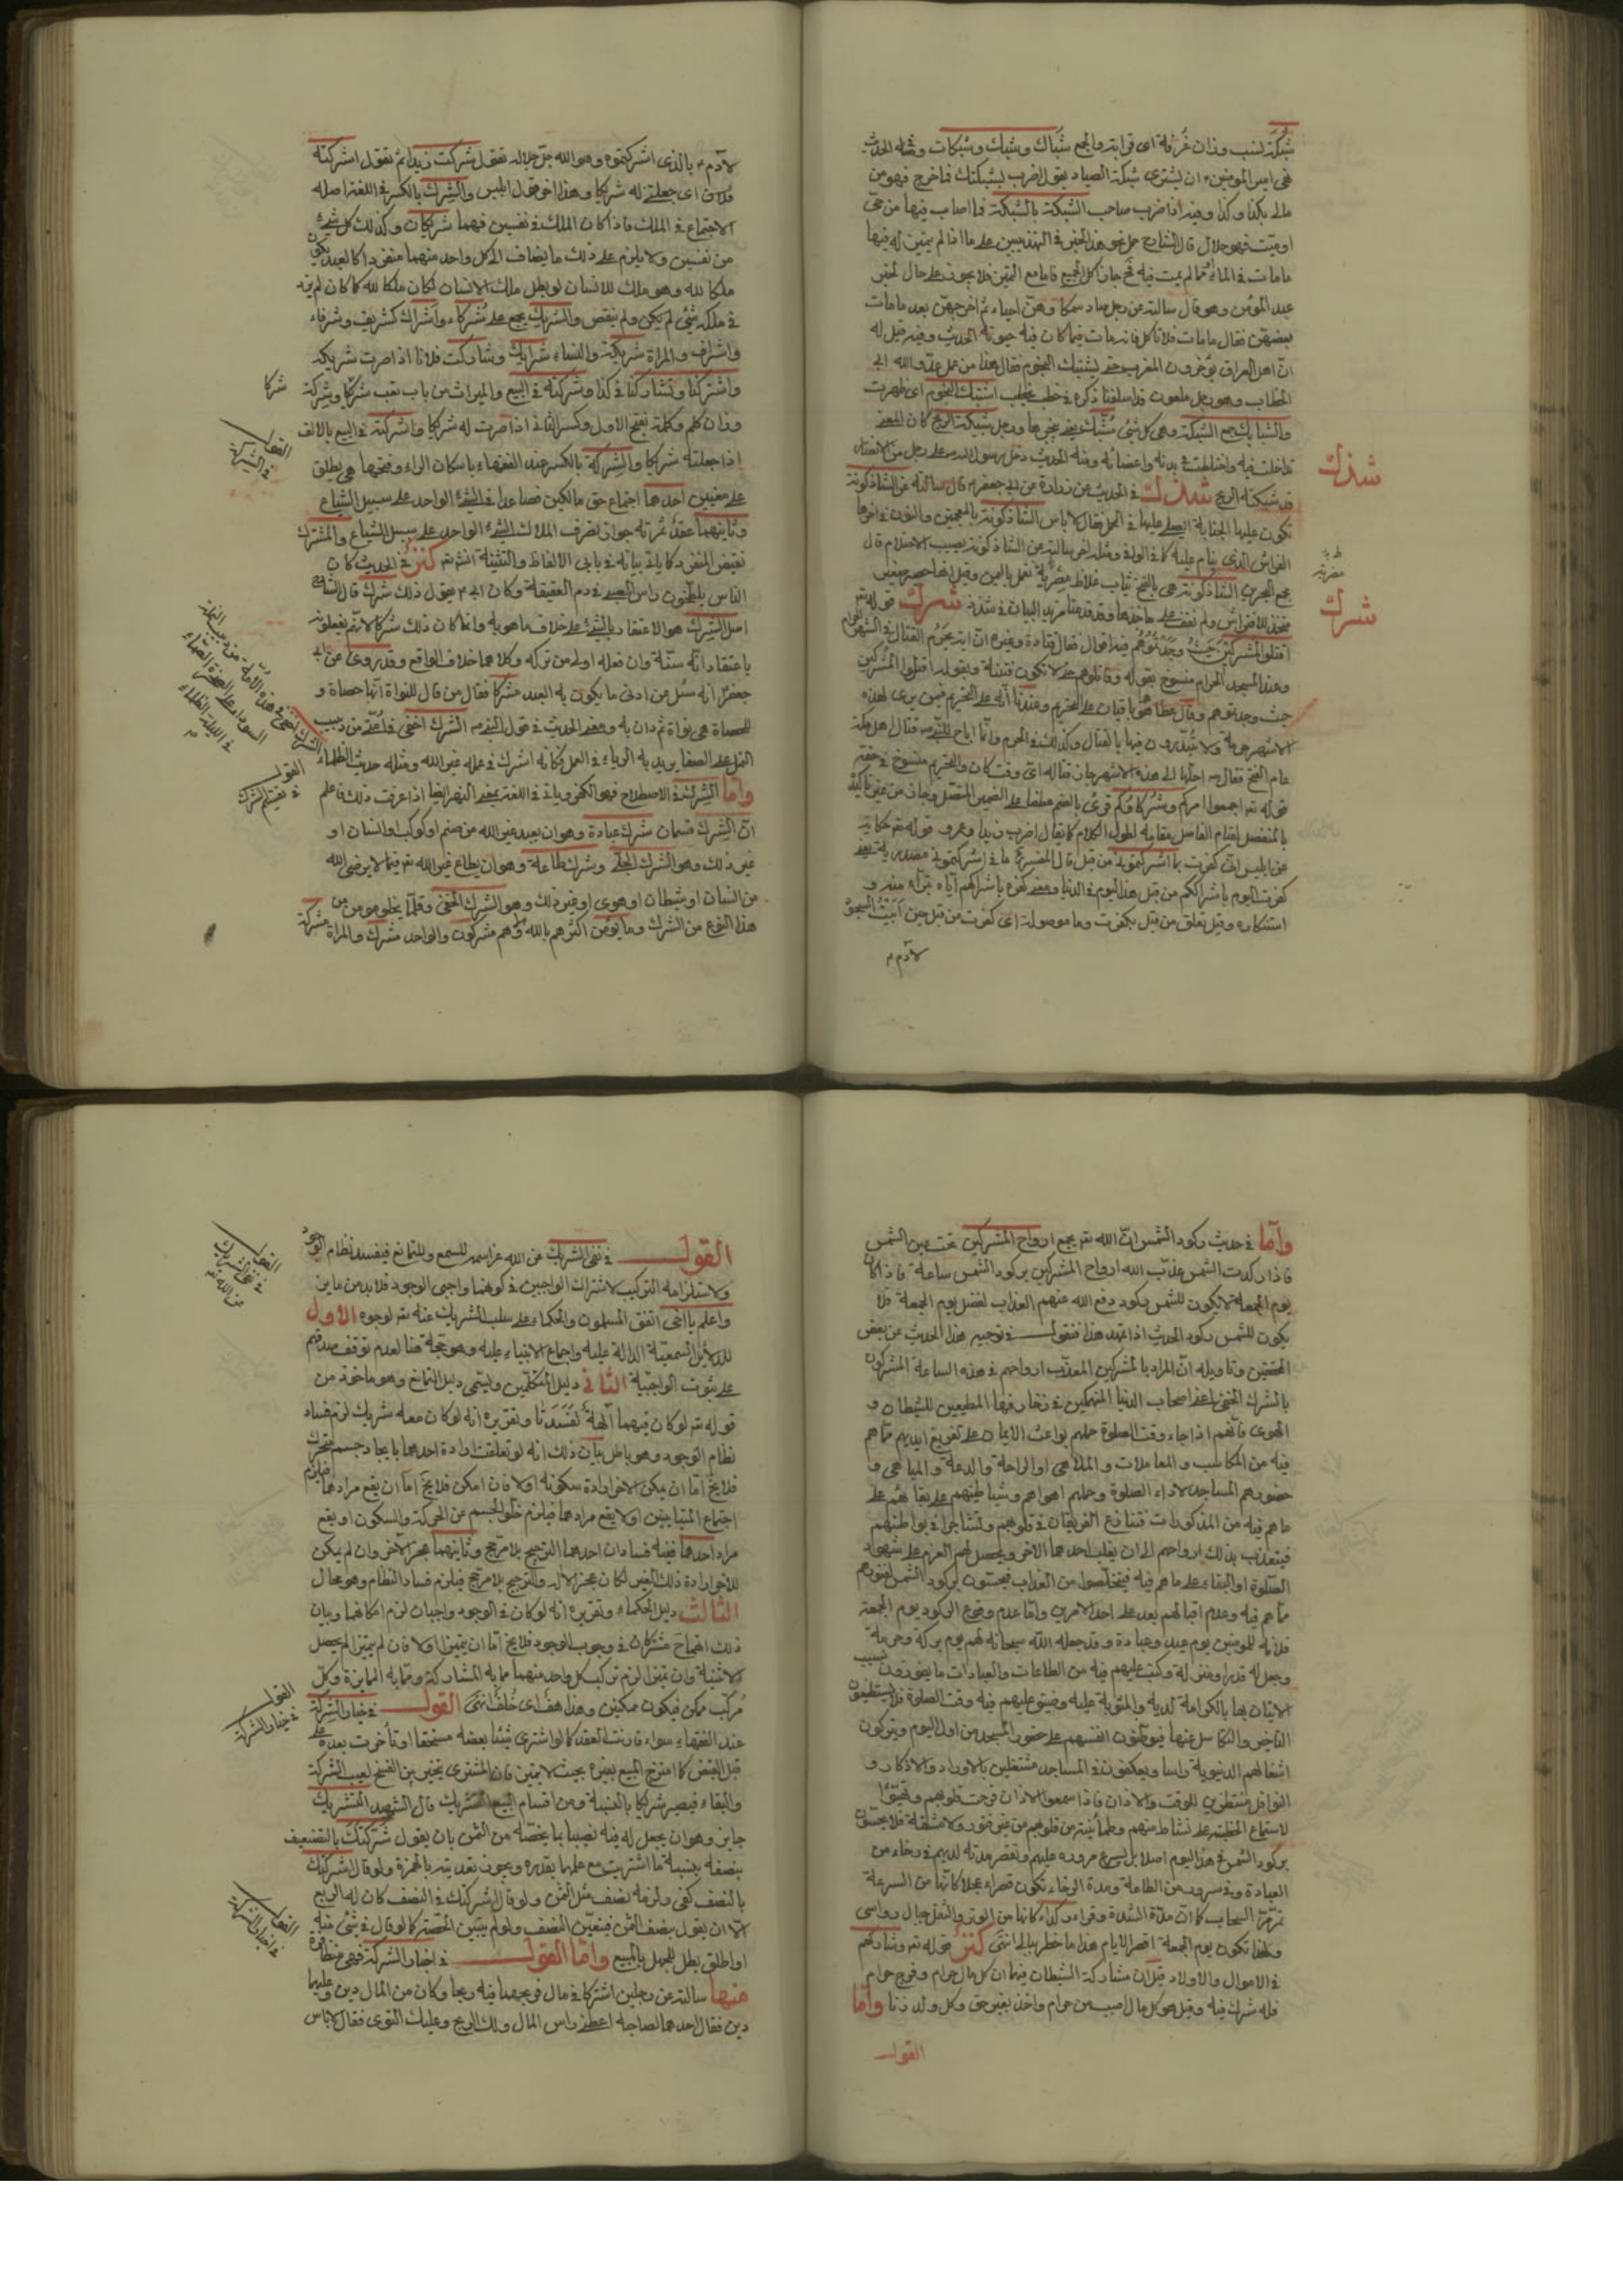 شبكة نسب وزان غرفة اى قرابة والجمع شباك وشبك وشبكات ومنه الحديث
نهى امير المؤمنين ان يشترى شبكة الصياد يقول اضرب بشبكتك فما خرج فهو من
مالى بكذا وكذا وفيه اذا ضرب صاحب الشبكة بالشبكة فما اصاب فيها من حى
او ميت فهو حلال قال الشارح حمل نحو هذا الخبر فى التهذيبين على ما اذا لم يتميز له فيها
ما مات فى الماء مما لم يمت فيه فح جاز اكل الجميع فاما مع التميز فلا يجوز على حال لخبر
عبد المؤمن وهو قال سالته عن رجل صاد سمكا وهن احياء ثم اخرجهن بعد ما مات
بعضهن فقال ما مات فلا تاكل فانه مات فيما كان فيه حيوته الحديث وفيه قيل له
ان اهل العراق يؤخرون المغرب حتى تشتبك النجوم فقال هذا من عمل عدو الله ابى
الخطاب وهو رجل ملعون قد اسلفنا ذكره فى خطب اشتبك النجوم اى ظهرت
والشبايك جمع الشبكة وهى كل شئ مشبك
تداخلت فيه واختلطت فى بدنه واعضائه ومنه الحديث دخل رسول الله على رجل من الانصار
قد شبكته الريح شذك فى الحديث عن زرارة عن ابى جعفر قال سالته عن الشاذكونة
تكون عليها الجنابة ايصلى عليها فى المحمل فقال لا باس الشاذكونة بالمعجمتين والنون فى اخرها
الفراش الذى ينام عليه
شرك
شذك
شرك
اقتلوا المشركين حيث وجدتموهم فيه اقوال فقال قتادة وغيره
وعند المسجد الحرام منسوخ بقوله وقاتلوهم حتى لا تكون فتنة وبقوله اقتلوا المشركين
حيث وجدتموهم وقال عطا هو باق على التحريم وعندنا انه على التحريم فيمن يرى لهذه
الاشهر حرمة ولا يبتدؤن فيها بالقتال وكذلك فى الحرم وانما اباح للنبى ص قتال اهل مكة
عام الفتح
قوله تم اجمعوا امركم وشركاؤكم قرئ بالضم عطفا على الضمير المتصل وجاز من غير تاكيد
بالمنفصل لقيام الفاصل مقامه لطول الكلام كما يقال اضرب زيدا وعمرو قوله تم حكاية
عن ابليس انى كفرت بما اشركتمون من قبل قال المفسر ما فى اشركتمون مصدرية يعنى
كفرت اليوم باشراككم من قبل هذا اليوم فى الدنيا ومعنى كفره باشراكهم اياه تبرأه منه و
استنكاره وقيل تعلق من قبل بكفرت وما موصولة اى كفرت من قبل حين ابيت السجود
لآدم
لآدم بالذى اشركتموه وهو الله جل جلاله تقول شركت زيدا ثم تقول اشركنيه
فلان اى جعلنى له شريكا وهذا اخر قول ابليس والشرك بالكسر فى اللغة اصله
الاجتماع فى الملك فاذا كان الملك فى نفسين فهما شريكان وكذلك كل شئ يكون
من نفسين ولا يلزم على ذلك ما يضاف الى كل واحد منهما منفردا كالعبد
ملكا لله وهو ملك للانسان لو بطل ملك الانسان لكان ملكا لله كما كان لم يزد
فى ملكه شئ لم يكن ولم ينقص والشريك يجمع على شركاء واشراك كشريف وشرفاء
واشراف والمراة شريكة والنساء شرايك وشاركت فلانا اذا صرت شريكه
واشتركنا وتشاركنا فى كذا وشركته فى البيع والميراث من باب تعب شركا وشركة
وزان كلم وكلمة بفتح الاول وكسر الثانى اذا صرت له شريكا واشركته فى البيع بالالف
اذا جعلته شريكا والشركة بالكسر عند الفقهاء باسكان الراء وفتحها هى يطلق
على معنيين احدهما اجتماع حق مالكين فصاعدا فى الشئ الواحد على سبيل الشياع
وثانيهما عقد ثمرته جواز تصرف الملاك الشئ الواحد على سبيل الشياع والمشترك
نقيض المنفرد كما ياتى بيانه فى بابى الالفاظ والتثنية انش تم كنز فى الحديث كان
الناس يلطخون راس الصبى فى دم العقيقة وكان ابى يقول ذلك شرك قال الشارح
اصل الشرك هو الاعتقاد بالشئ على خلاف ما هو به وانما كان ذلك شركا لانهم يفعلونه
باعتقاد انه سنة وان فعله اولى من تركه وكلاهما خلاف الواقع وقد روى عن ابى
جعفر انه سئل عن ادنى ما يكون به العبد مشركا فقال من قال للنواة انها حصاة و
للحصاة هى نواة ثم دان به ومعنى الحديث فى قول النبى ص الشرك اخفى فى امتى من دبيب
النمل على الصفا يريد به الرياء فى العمل فكانه اشرك فى عمله غير الله ومثله حديث الظلماء
واما الشرك فى الاصطلاح فهو الكفر وياتى فى اللغة بمعنى النصر ايضا اذا عرفت ذلك فاعلم
ان الشرك قسمان شرك عبادة وهو ان يعبد غير الله من صنم او كوكب او انسان او
غير ذلك وهو الشرك الجلى وشرك طاعة وهو ان يطاع غير الله تم فيما لا يرضى الله
من انسان او شيطان او هوى او غير ذلك وهو الشرك الخفى وقلما يخلو مؤمن من
هذا النوع من الشرك وما يؤمن اكثرهم بالله الا وهم مشركون والواحد مشرك والمراة مشركة
شركا
القول
فى الشركة
القول
فى تقسيم الشرك
واما فى حديث ركود الشمس ان الله تم يجمع ارواح المشركين تحت عين الشمس
فاذا ركدت الشمس عذب الله ارواح المشركين بركود الشمس ساعة فاذا كان
يوم الجمعة لا يكون للشمس ركود رفع الله عنهم العذاب لفضل يوم الجمعة فلا
يكون للشمس ركود الحديث اذا تمهد هذا فنقول فى توجيه هذا الحديث عن بعض
المحققين وتاويله ان المراد بالمشركين المعذب ارواحهم فى هذه الساعة المشركون
بالشرك الخفى اعنى اصحاب الدنيا المنهمكين فى زخارفها المطيعين للشيطان و
الهوى فانهم اذا جاء وقت الصلوة حملهم بواعث الايمان على تفريغ ايديهم مما هم
فيه من المكاسب والمعاملات والملاهى او الراحة والدعة والمباهى و
حضورهم المساجد لاداء الصلوة وحملهم اهواهم وشياطينهم على بقائهم على
ما هم فيه من المذكورات فتنازع الفريقان فى قلوبهم وتشاجرا فى بواطنهم
فيتعذب بذلك ارواحهم الى ان يغلب احدهما الاخر ويحصل لهم العزم على شهود
الصلوة او البقاء على ما هم فيه فيتخلصوا من العذاب فيحسون بركود الشمس
مما هم فيه وعدم اقبالهم بعد على احد الامرين واما عدم وقوع الركود يوم الجمعة
فلانه للمؤمنين يوم عيد وعبادة وقد جعله الله سبحانه لهم يوم بركة وحرمة
وجعل له قدرا ومنزلة وكتب عليهم فيه من الطاعات والعبادات ما يفوزون بسبب
الاتيان بها بالكرامة لديه والمثوبة عليه وضيق عليهم فيه وقت الصلوة فلا يستطيعون
التاخير والتكاسل عنها فيوطنون انفسهم على حضور المسجد من اول اليوم ويتركون
اشغالهم الدنيوية راسا ويعكفون فى المساجد مشتغلين بالاوراد والاذكار و
النوافل منتظرين للوقت والاذان فاذا سمعوا الاذان فرحت قلوبهم وتهيئوا
لاستماع الخطبة على نشاط منهم وطمأنينة من قلوبهم من غير فتور ولا مشقة فلا يحسون
بركود الشمس فى هذا اليوم اصلا بل يسرع مروره عليهم وتقصر مدته لديهم فى رخاء من
العبادة وفى سرور من الطاعة ومدة الرخاء تكون قصراء عجلا كانها من السرعة
تمر مر السحاب كما ان مدة الشدة
ولهذا تكون يوم الجمعة اقصر الايام هذا ما خطر ببالى انتهى كنز قوله تم وشاركهم
فى الاموال والاولاد قيل ان مشاركة الشيطان فيها ان كل مال حرام وفرج حرام
فله شرك فيه وقيل هو كل مال اصيب من حرام واخذ بغير حق وكل ولد زنا واما
القول
القول فى نفى الشريك عن الله عز اسمه للسمع وللتمانع فيفسد نظام الوجود
ولاستلزامه التركيب لاشتراك الواجبين فى كونهما واجبى الوجود فلا بد من ماين
واعلم يا اخى اتفق المسلمون والحكماء على سلب الشريك عنه تم لوجوه الاول
للدلائل السمعية الدالة عليه واجماع الانبياء عليه وهو حجة هنا لعدم توقف صدقهم
على ثبوت الواجبية الثانى دليل المتكلمين ويسمى دليل التمانع وهو ماخوذ من
قوله تم لو كان فيهما آلهة لفسدتا وتقريره انه لو كان معه شريك لزم فساد
نظام الوجود وهو باطل بيان ذلك انه لو تعلقت ارادة احدهما بايجاد جسم متحرك
فلا يخ اما ان يمكن للاخر ارادة سكونه اولا فان امكن فلا يخ اما ان يقع مرادهما فيلزم
اجتماع المتنافيين اولا يقع مرادهما فيلزم خلو الجسم عن الحركة والسكون او يقع
مراد احدهما ففيه فسادان احدهما الترجيح بلا مرجح وثانيهما عجز الآخر وان لم يمكن
للاخر ارادة ذلك الغير لكان عجزا والترجيح بلا مرجح فيلزم فساد النظام وهو محال
الثالث دليل الحكماء وتقريره انه لو كان فى الوجود واجبان لزم امكانهما وبيان
ذلك انهما ح مشتركان فى وجوب الوجود فلا يخ اما ان يتميزا اولا فان لم يتميزا لم يحصل
الاثنينية وان تميزا لزم تركب كل واحد منهما مما به المشاركة ومما به الممايزة وكل
مركب ممكن فيكون ممكنين وهذا هف اى خلف انتهى القول فى خيار الشركة
عند الفقهاء سواء قارنت العقد كما لو اشترى شيئا بعضه مستحقا او تأخرت بعده
قبل القبض كما امتزج المبيع بغيره بحيث لا يتميز فان المشترى يتخير بين الفسخ لعيب الشركة
والبقاء فيصير شريكا بالنسبة ومن اقسام البيع التشريك قال الشهيد التشريك
جايز وهو ان يجعل له فيه نصيبا بما يخصه من الثمن بان يقول شركتك بالتضعيف
بنصفه بنسبة ما اشتريت مع علمهما بقدره ويجوز تعديته بالهمزة ولو قال اشركتك
بالنصف كفى ولزمه نصف مثل الثمن ولو قال اشركتك فى النصف كان له الربع
الا ان يقول بنصف الثمن فيتعين النصف ولو لم يبين الحصة كما لو قال فى شئ منه
او اطلق بطل للجهل بالمبيع واما القول فى اخبار الشركة فهى متظافرة
منها سالته عن رجلين اشتركا فى مال فربحا فيه ربحا وكان من المال دين وعليهما
دين فقال احدهما لصاحبه اعطنى راس المال ولك الربح وعليك التوى فقال لا باس
القول
فى نفى الشريك
عن الله تم
القول
فى خيار الشركة
القول
فى اخبار الشركة